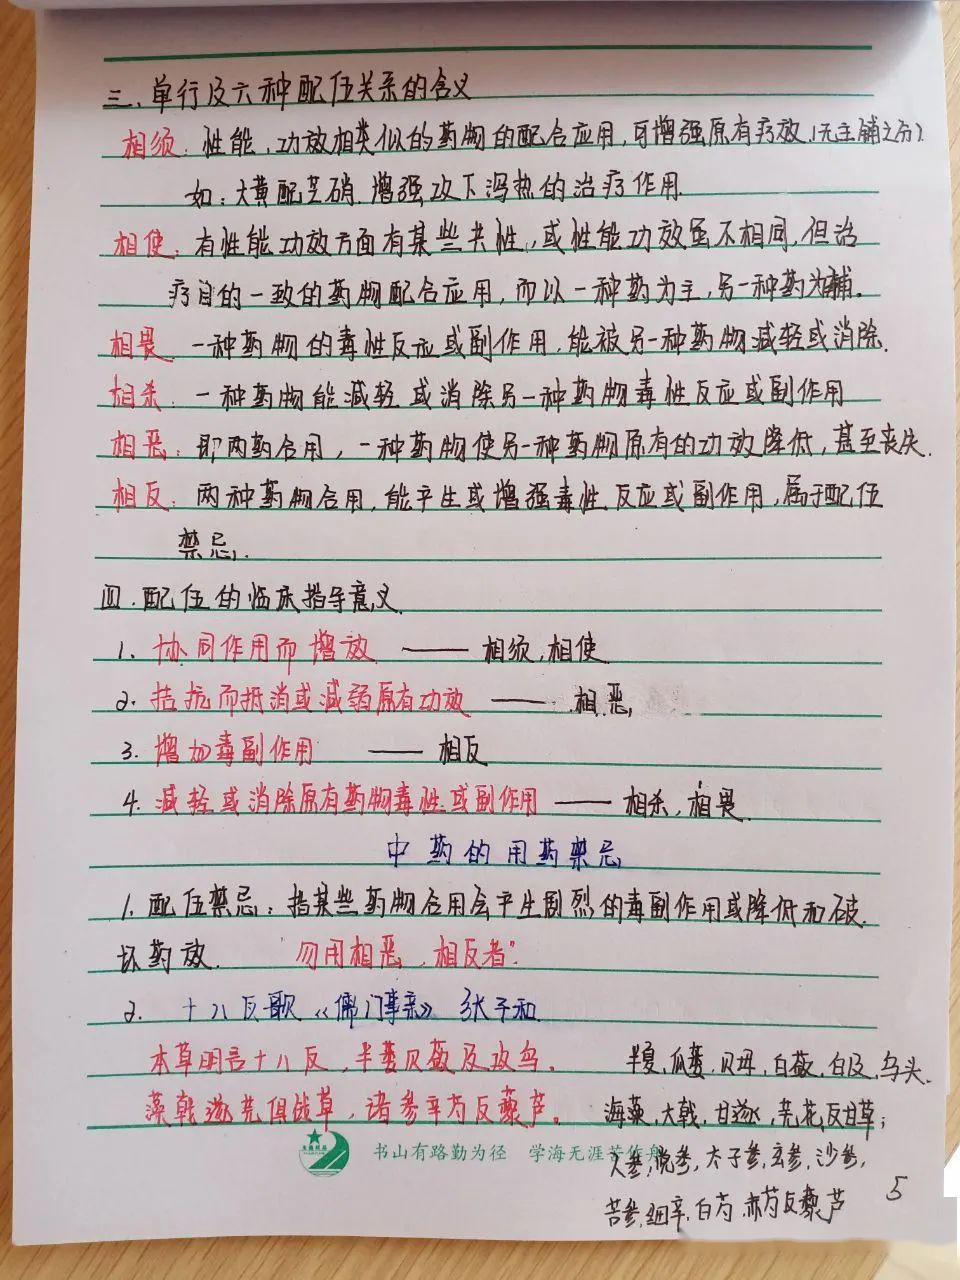 三、单行及六种配伍关系的含义
相须：性能，功效相类似的药物的配合应用，可增强原有疗效.(无主辅之分).
如：大黄配芒硝.增强攻下泻热的治疗作用.
相使：有性能功效方面有某些共性，或性能功效虽不相同，但治
疗目的一致的药物配合应用，而以一种药为主，另一种药为辅。
相畏 一种药物的毒性反应或副作用，能被另一种药物减轻或消除.
相杀：一种药物能减轻或消除另一种药物毒性反应或副作用
相恶：即两药合用，一种药物使另一种药物原有的功效降低，甚至丧失.
相反：两种药物合用，能产生或增强毒性反应或副作用，属于配伍
禁忌.
四.配伍的临床指导意义.
1. 协同作用而增效 —— 相须，相使
2. 拮抗而抵消或减弱原有功效 —— .相恶
3. 增加毒副作用 —— 相反
4. 减轻或消除原有药物毒性或副作用 —— 相杀，相畏.
中药的用药禁忌
1. 配伍禁忌：指某些药物合用会产生剧烈的毒副作用或降低和破
坏药效. "勿用相恶，相反者"
2. 十八反歌《儒门事亲》 张子和
本草明言十八反，半蒌贝蔹及攻乌。
藻戟遂芫俱战草，诸参辛芍反藜芦。
半夏，瓜蒌，贝母，白蔹，白及，乌头.
海藻，大戟，甘遂，芫花，反甘草；
人参，党参，太子参，玄参，沙参，
苦参，细辛，白芍，赤芍反藜芦
书山有路勤为径 学海无涯苦作舟
5